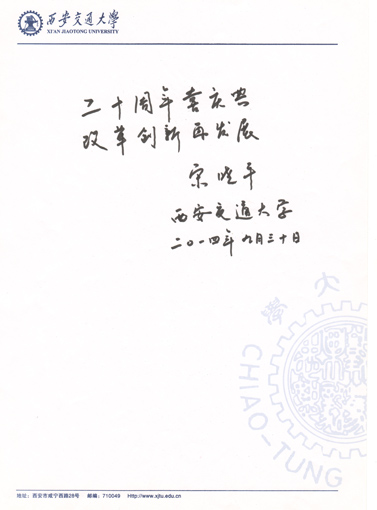 西安交通大学
XI'AN JIAOTONG UNIVERSITY
二十周年喜庆典
改革创新再发展
宋晓平
西安交通大学
二〇一四年九月三十日
大
學
CHIAO-TUNG
地址:西安市咸宁西路28号 邮编:710049 Http://www.xjtu.edu.cn